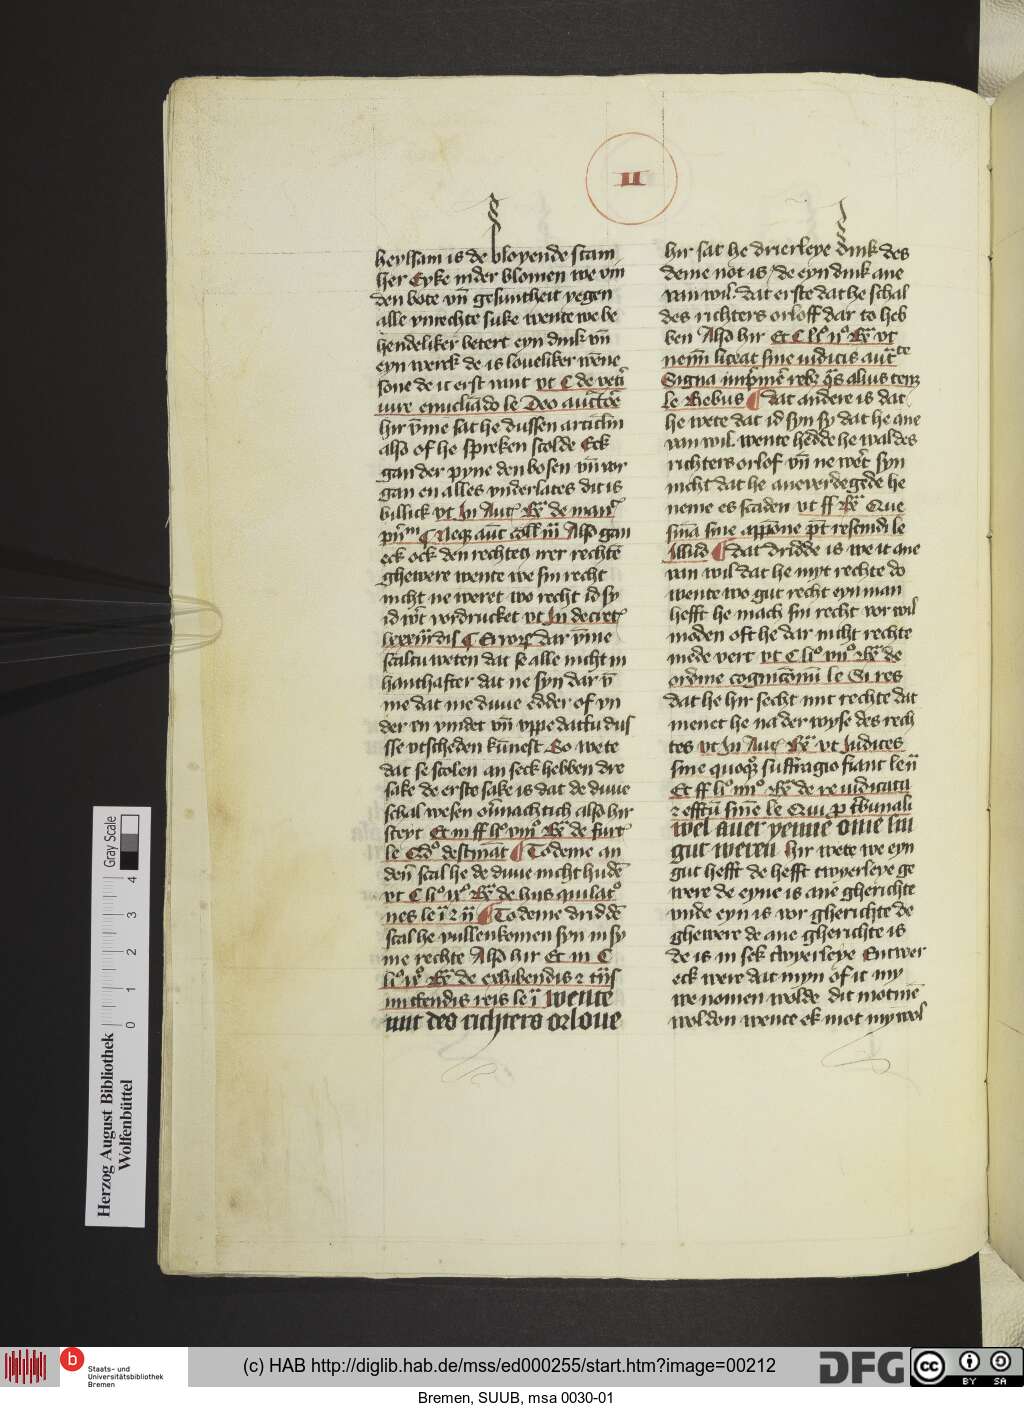 II
heylsam is de bloyende stam
her Eyke in der blomen we vin
den bote vn̄ gesuntheit yegen
alle vnrechte sake wente we be
hendeliker betert eyn dink vn̄
eyn werck de is loueliker wēne
sone de it erst vant vt C de veti
iure enucliādo le Deo auctoē
hir vme sat he dussen articlm
also of he spreken scolde Eck
gan der pyne den bosen vn̄ vor
gan en alles vnderlates dit is
billick vt In Aut
Also gan
eck ock den rechten irer rechtē
ghewere wente we sin recht
nicht ne weret wo recht id sy
id wert vordrucket vt In decret
dar vme
scaltu weten dat se alle nicht in
hanthafter dat ne syn dar vm
me dat me duue edder of yn
der en vindet vn̄ vppe dat tu dus
sse vtscheden kunest So wete
dat se scolen an seck hebben dre
sake de erste sake is dat de duue
schal wesen also hir
steyt Et in ff li° viii° Rᵃ de furt
le Edo destinat ¶ To deme an
den scal he de duue nicht hudē
vt C li° ix° Rᵃ de hus qui lat°
nes le i 2 ii ¶ To deme driddē
scal he vullenkomen syn in sy
me rechte Also hir Et in C
li° ix° Rᵃ de exhibendis 2
mittendis reis le i wente
mit des richters orloue
hir sat he drierleye dink des
deme not is / de eyn dink ane
van wil. dat erste dat he schal
des richters orloff dar to heb
ben Also hir Et C li° ii° Rᵃ vt
nemi liceat sine iudicis auctte
Signa
le Rebus ¶ dat andere is dat
he wete dat id syn sy dat he ane
van wil. wente hedde he wal des
richters orlof vn̄ ne wert syn
nicht dat he aneverdegede he
neme es scaden vt ff Rᵃ Que
sine appone
Illud ¶ dat dridde is we it ane
van wil dat he myt rechte do
wente wo gut recht eyn man
hefft he mach sin recht vor wil
moden oft he dar nicht rechte
mede vert vt C li° vii° Rᵃ de
ordine cognicionū le Si res
dat he hir secht mit rechte dat
menet he na der wyse des rech
tes vt In Aut Rᵃ vt Iudices
sine quoqʒ suffragio fiant le ii
Et ff li° iiii° Rᵃ de re iudicata
2 effctu sine le Qui p tbunali
wel auer yenne ome sin
gut weren hir wete we eyn
gut hefft de hefft twyerleye ge
were de eyne is ane gherichte
vnde eyn is vor gherichte de
ghewere de ane gherichte is
de is in sek twyerleye Entwer
eck were dat myn of it my
we nomen wolde dit mot me
wol don wente ek mot my wol
Herzog August Bibliothek
Wolfenbüttel
Gray Scale
0 1 2 3 4
b
Staats- und
Universitätsbibliothek
Bremen
(c) HAB http://diglib.hab.de/mss/ed000255/start.htm?image=00212
DFG
cc
BY SA
Bremen, SUUB, msa 0030-01